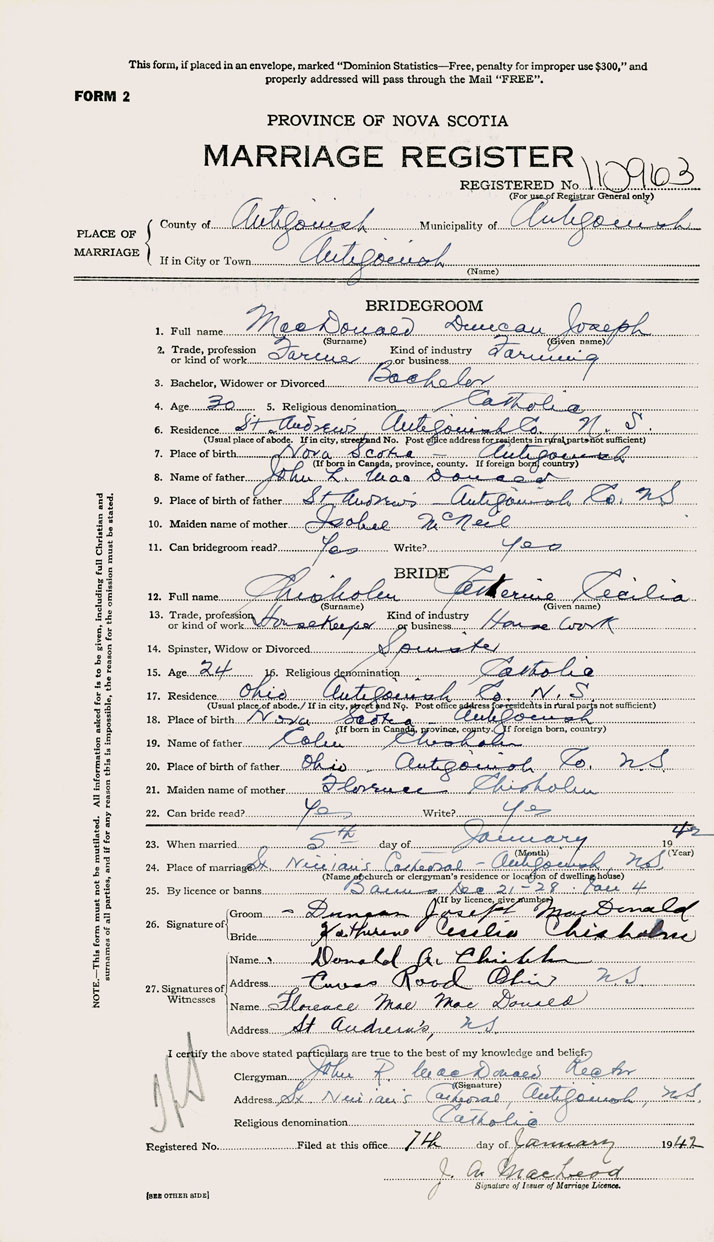 This form, if placed in an envelope, marked “Dominion Statistics—Free, penalty for improper use $300,” and
properly addressed will pass through the Mail “FREE”.
FORM 2
PROVINCE OF NOVA SCOTIA
MARRIAGE REGISTER
REGISTERED No. 110963
(For use of Registrar General only)
PLACE OF MARRIAGE
County of Antigonish Municipality of Antigonish
If in City or Town Antigonish
(Name)
BRIDEGROOM
1. Full name MacDonald Duncan Joseph
(Surname) (Given name)
2. Trade, profession or kind of work Farmer Kind of industry or business Farming
3. Bachelor, Widower or Divorced Bachelor
4. Age 30 5. Religious denomination Catholic
6. Residence St Andrew's Antigonish Co. N. S.
(Usual place of abode. If in city, street and No. Post office address for residents in rural parts not sufficient)
7. Place of birth Nova Scotia - Antigonish
(If born in Canada, province, county. If foreign born, country)
8. Name of father John L. MacDonald
9. Place of birth of father St Andrew's - Antigonish Co. NS
10. Maiden name of mother Isobel McNeil
11. Can bridegroom read? Yes Write? Yes
BRIDE
12. Full name Chisholm Catherine Cecilia
(Surname) (Given name)
13. Trade, profession or kind of work Housekeeper Kind of industry or business House Work
14. Spinster, Widow or Divorced Spinster
15. Age 24 16. Religious denomination Catholic
17. Residence Ohio Antigonish Co. N. S.
(Usual place of abode. If in city, street and No. Post office address for residents in rural parts not sufficient)
18. Place of birth Nova Scotia - Antigonish
(If born in Canada, province, county. If foreign born, country)
19. Name of father Colin Chisholm
20. Place of birth of father Ohio - Antigonish Co. NS
21. Maiden name of mother Florence Chisholm
22. Can bride read? Yes Write? Yes
23. When married 5th day of January 1942
(Month) (Year)
24. Place of marriage St. Ninian's Cathedral - Antigonish, NS
(Name of church or clergyman's residence or location of dwelling house)
25. By licence or banns Banns Dec 21-28 Jan 4
(If by licence, give number)
26. Signature of
Groom - Duncan Joseph MacDonald
Bride Katherine Cecilia Chisholm
27. Signatures of Witnesses
Name Donald A. Chisholm
Address Road Ohio NS
Name Florence Mae MacDonald
Address St Andrew's, NS
I certify the above stated particulars are true to the best of my knowledge and belief.
Clergyman John R. MacDonald Rector
(Signature)
Address St. Ninian's Cathedral, Antigonish, NS.
Religious denomination Catholic
Registered No. Filed at this office 7th day of January 1942
J. A. MacLeod
Signature of Issuer of Marriage Licence.
[SEE OTHER SIDE]
NOTE.—This form must not be mutilated. All information asked for is to be given, including full Christian and
surnames of all parties, and if for any reason this is impossible, the reason for the omission must be stated.